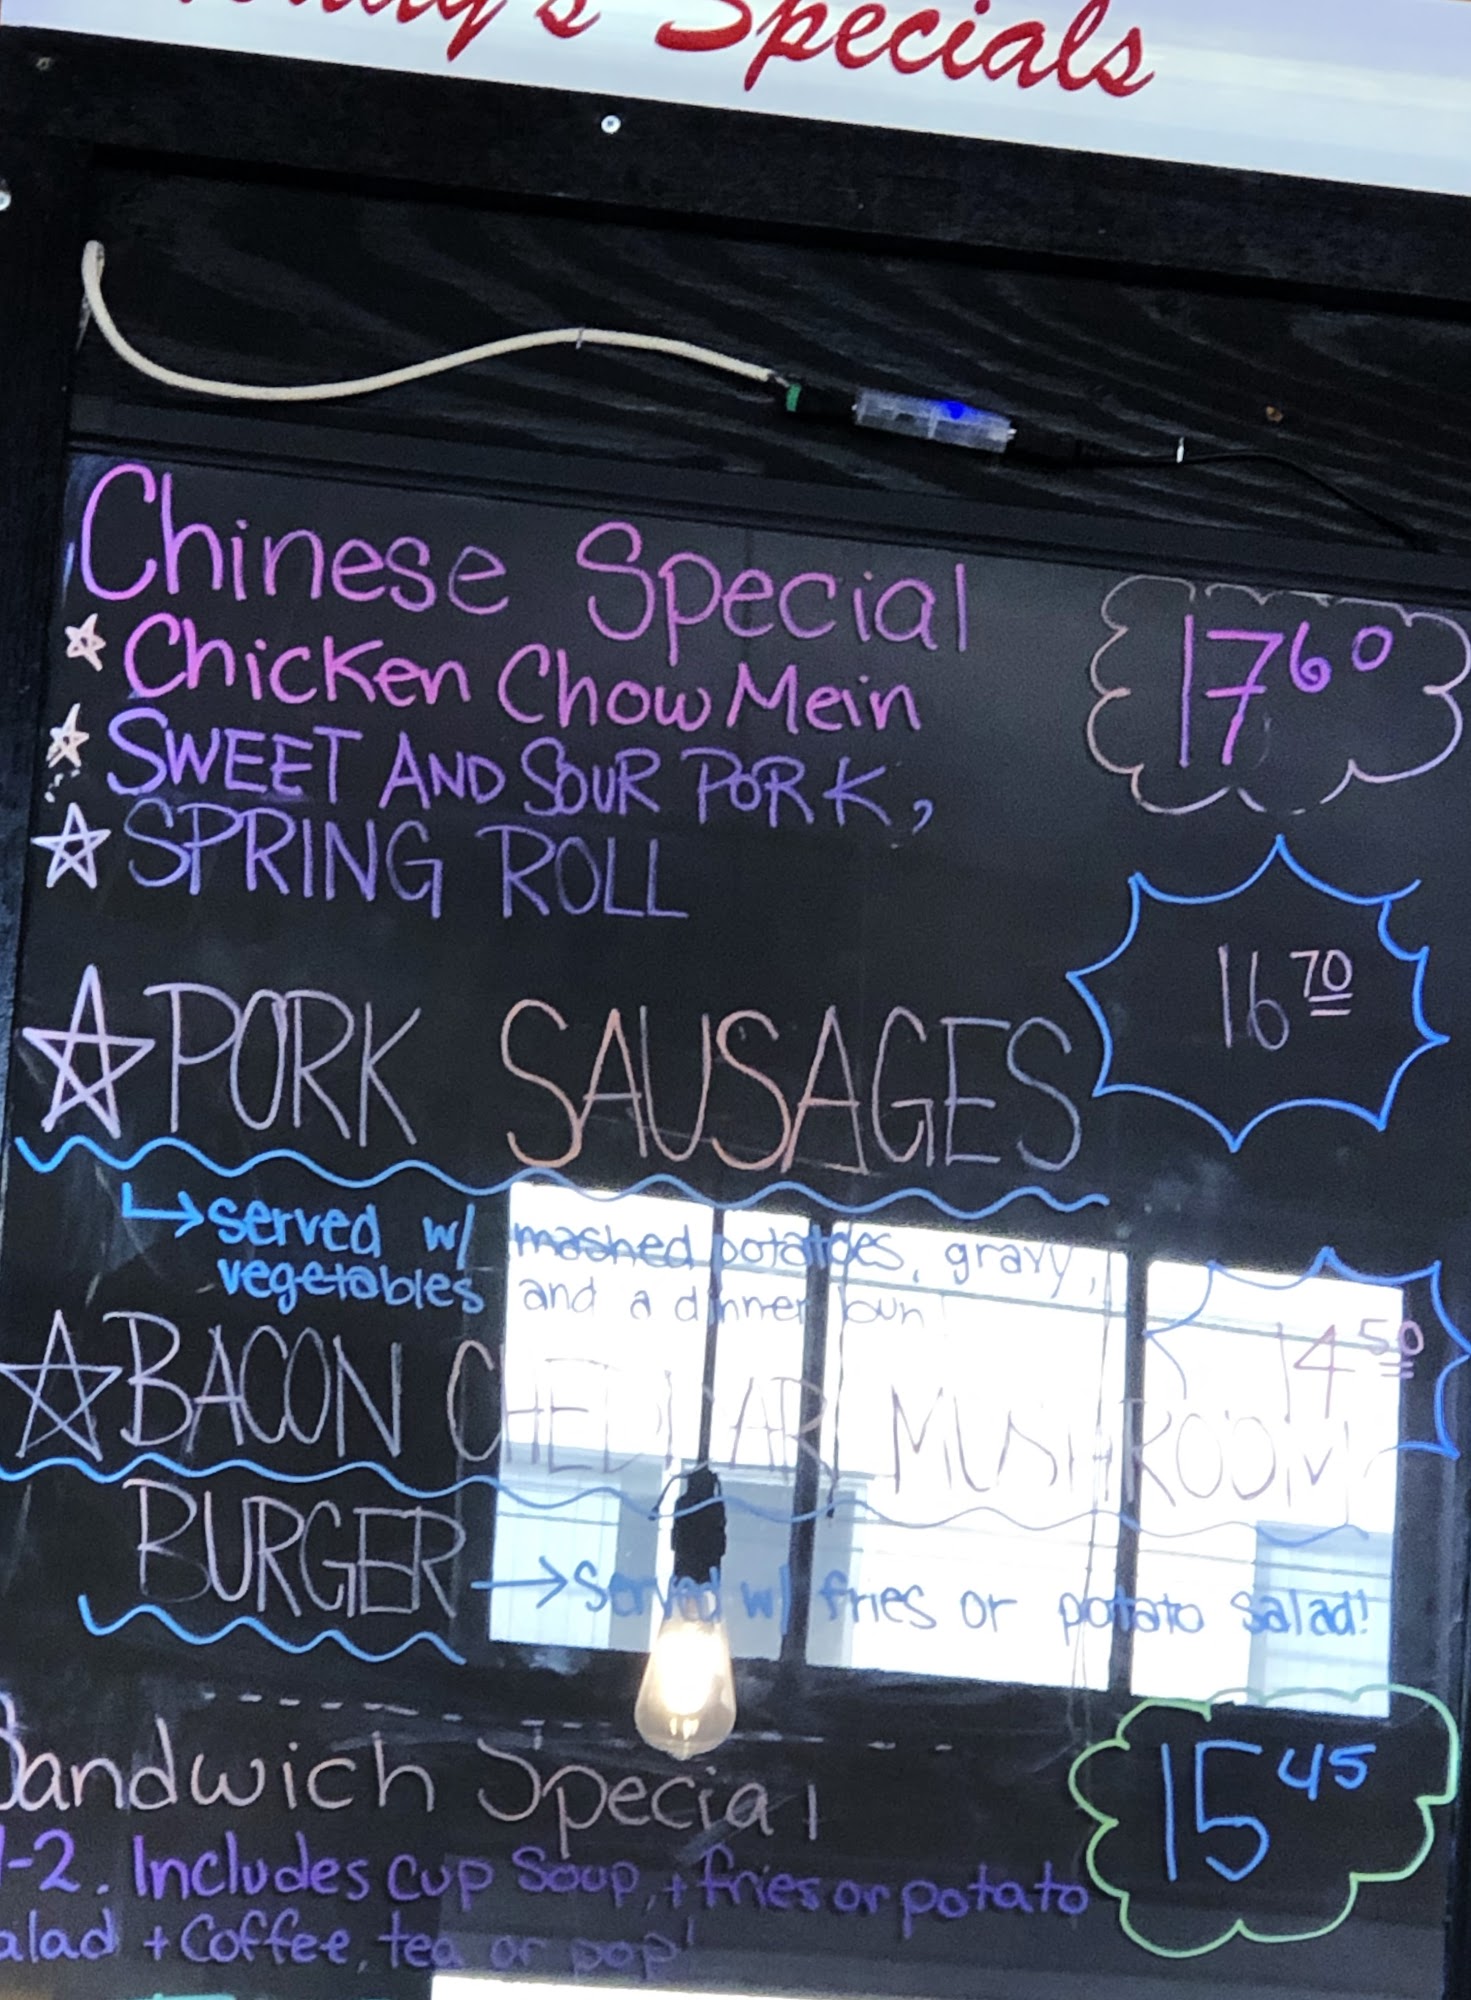 Today's Specials
Chinese Special
Chicken Chow Mein
17 60
SWEET AND SOUR PORK,
SPRING ROLL
16 70
PORK SAUSAGES
→ served w/ mashed potatoes, gravy,
vegetables and a dinner bun!
14 50
BACON CHEDDAR MUSHROOM
BURGER → served w/ fries or potato salad!
Sandwich Special
15 45
11-2. Includes cup Soup, + fries or potato
salad + Coffee, tea or pop!